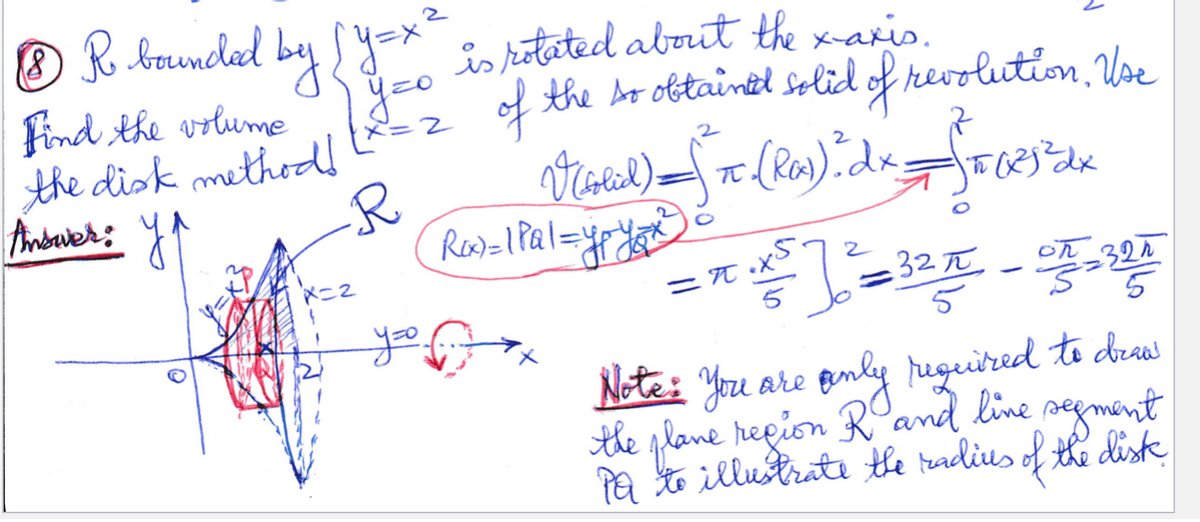 ⑧ R bounded by { y=x² is rotated about the x-axis.
y=0
x=2
Find the volume of the so obtained solid of revolution. Use
the disk method!
V(solid)=∫₀² π.(R(x))².dx = ∫₀² π(x²)²dx
Answer:
y
R
R(x)=|PQ|=y_P-y_Q=x²
= π.x⁵/5 ]₀² = 32π/5 - 0π/5 = 32π/5
y=x²
P
x=2
y=0
x
O
Q
2
Note: You are only required to draw
the plane region R and line segment
PQ to illustrate the radius of the disk.